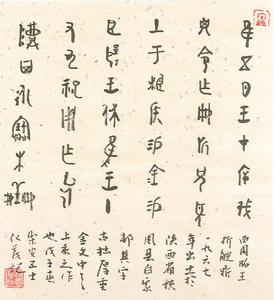 隹五月王才斥戊
子令乍冊折兄望
土于相侯易金易
臣揚王休隹王十
又九祀用乍父乙
尊其永寶木羊冊
西周昭王
折觥
一九六七
年出土於
陝西省扶
風縣白家
其字
古拙厚重
金文中之
上乘之作
也戊子春